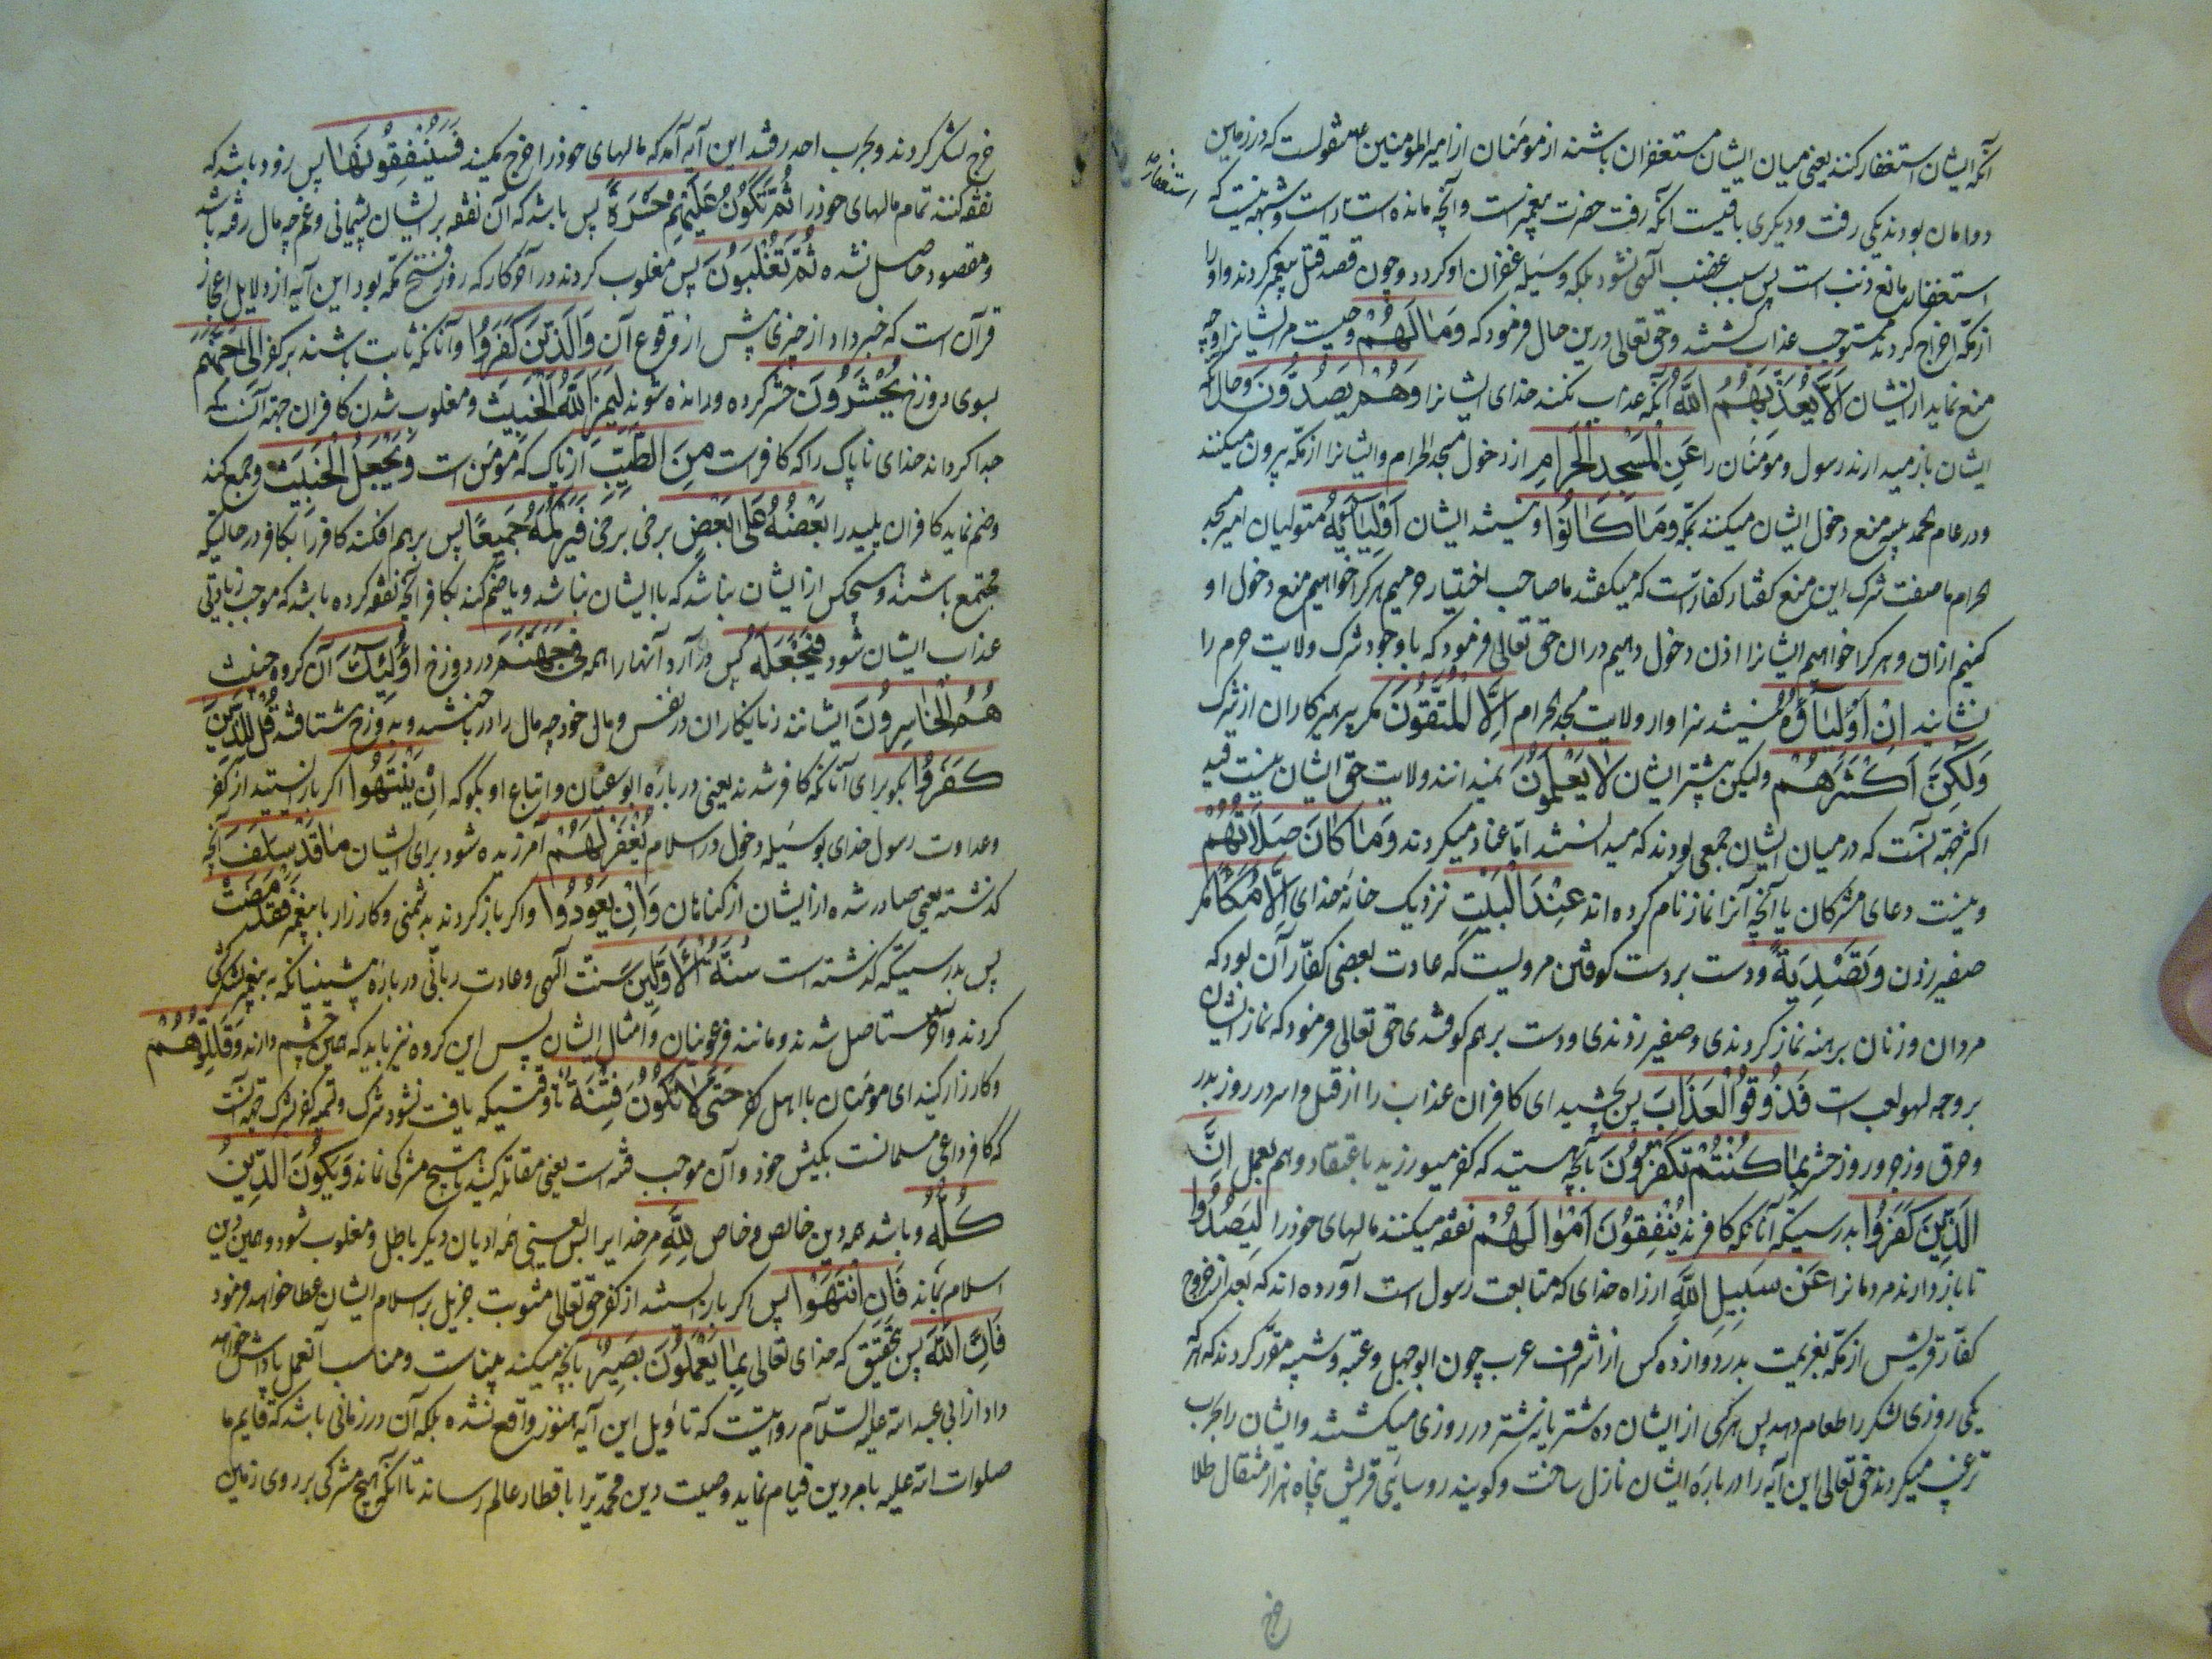 آنکه ایشان استغفار کنند یعنی میان ایشان مستغفران باشند از مومنان از امیر المؤمنین ع منقولست که در زمین
دو امان بودند یکی رفت و دیگری باقیست آنکه رفت حضرت پیغمبر است و آنچه مانده است و شبهه نیست که
استغفار
استغفار مانع ذنب است پس سبب غضب الهی نشود بلکه وسیله غفران او کردد و چون قصد قتل پیغمبر کردند و او را
از مکه اخراج کردند مستوجب عذاب کشتند و حق تعالی درین حال فرمود که وَمَا لَهُمْ و چیست مر ایشانرا و چه
منع نماید از ایشان اَلَّا يُعَذِّبَهُمُ اللَّهُ آنکه عذاب نکند خدای ایشانرا وَهُمْ يَصُدُّونَ و حال آنکه
ایشان باز میدارند رسول و مومنان را عَنِ الْمَسْجِدِ الْحَرَامِ از دخول مسجد الحرام و ایشانرا از مکه بیرون میکنند
و در عام حدیبیه منع دخول ایشان میکنند بمکه وَمَا كَانُوا و نیستند ایشان اَوْلِيَاءَهُ متولیان امر مسجد
الحرام با صفت شرک این منع کفتار کفار است که میکفتند ما صاحب اختیار حرمیم هر کرا خواهیم منع دخول او
کنیم ازان و هر کرا خواهیم ایشانرا اذن دخول دهیم دران حق تعالی فرمود که با وجود شرک ولایت حرم را
نشایند اِنْ اَوْلِيَاؤُهُ نیستند سزاوار ولایت مسجد الحرام اِلَّا الْمُتَّقُونَ مکر پرهیزکاران از شرک
وَلَكِنَّ اَكْثَرَهُمْ ولیکن بیشتر ایشان لَا يَعْلَمُونَ نمیدانند ولایت حق ایشان نیست قید
اکثر جهة آنست که در میان ایشان جمعی بودند که میدانستند اما عناد میکردند وَمَا كَانَ صَلَاتُهُمْ
و نیست دعای مشرکان یا آنچه آنرا نماز نام کرده اند عِنْدَ الْبَيْتِ نزدیک خانه خدای اِلَّا مُكَاءً مکر
صفیر زدن وَتَصْدِيَةً و دست بر دست کوفتن مرویست که عادت بعضی کفار آن بود که
مردان و زنان برهنه نماز کردندی و صفیر زدندی و دست بر هم کوفتندی حق تعالی فرمود که نماز ایشان
بر وجه لهو لعب است فَذُوقُوا الْعَذَابَ پس بچشید ای کافران عذاب را از قتل و اسر در روز بدر
و حرق و زجر در روز حشر بِمَا كُنْتُمْ تَكْفُرُونَ بآنچه هستید که کفر میورزید با عتقاد و هم بعمل اِنَّ
الَّذِينَ كَفَرُوا بدرستیکه آنانکه کافرند يُنْفِقُونَ اَمْوَالَهُمْ نفقه میکنند مالهای خود را لِيَصُدُّوا
تا باز دارند مردمانرا عَنْ سَبِيلِ اللَّهِ از راه خدای که متابعت رسول است آورده اند که بعد از خروج
کفار قریش از مکه بعزیمت بدر دوازده کس از اشراف عرب چون ابوجهل و عتبه و شیبه مقرر کردند که هر
یکی روزی لشکر را طعام دهد پس هر یکی از ایشان ده شتر یا نه شتر در روزی میکشتند و ایشان را بحرب
ترغیب میکردند حق تعالی این آیه را در باره ایشان نازل ساخت و کویند روسای قریش پنجاه هزار مثقال طلا
خرج
خرج لشکر کردند و بحرب احد رفتند این آیه آمد که مالهای خود را خرج میکنند فَسَيُنْفِقُونَهَا پس زود باشد که
نفقه کنند تمام مالهای خود را ثُمَّ تَكُونُ عَلَيْهِمْ حَسْرَةً پس باشد که آن نفقه بر ایشان پشیمانی و غم چه مال رفته باشد
و مقصود حاصل نشده ثُمَّ يُغْلَبُونَ پس مغلوب کردند در آخر کار که روز فتح مکه بود این آیه از دلایل اعجاز
قرآن است که خبر داد از چیزی پیش از وقوع آن وَالَّذِينَ كَفَرُوا و آنانکه ثابت باشند بر کفر اِلَى جَهَنَّمَ
بسوی دوزخ يُحْشَرُونَ حشر کرده و رانده شوند لِيَمِيزَ اللَّهُ الْخَبِيثَ و مغلوب شدن کافران جهة آنست که
جدا کرداند خدای ناپاک را که کافر است مِنَ الطَّيِّبِ از پاک که مومن است وَيَجْعَلَ الْخَبِيثَ و جمع کند
و ضم نماید کافران پلید را بَعْضَهُ عَلَى بَعْضٍ برخی بر برخی فَيَرْكُمَهُ جَمِيعًا پس بر هم افکند کافر را بکافر در حالتیکه
مجتمع باشند و هیچکس از ایشان نباشد که با ایشان نباشد و یا ضم کند بکافر آنچه نفقه کرده باشد که موجب زیادتی
عذاب ایشان شود فَيَجْعَلَهُ پس در آرد آنها را همه فِي جَهَنَّمَ در دوزخ اُولَئِكَ آن کروه خبیث
هُمُ الْخَاسِرُونَ ایشانند زیانکاران در نفس و مالی خود چه مال را در باختند و بدوزخ شتافته قُلْ لِلَّذِينَ
كَفَرُوا بکو برای آنانکه کافر شدند یعنی در باره ابوسفیان و اتباع او بکو که اِنْ يَنْتَهُوا اکر باز ایستید از کفر
و عداوت رسول خدای بوسیله دخول در اسلام يُغْفَرْ لَهُمْ آمرزیده شود برای ایشان مَا قَدْ سَلَفَ آنچه
کذشته یعنی صادر شده از ایشان از کناهان وَاِنْ يَعُودُوا و اکر باز کردند بدشمنی و کارزار با پیغمبر فَقَدْ مَضَتْ
پس بدرستیکه کذشته است سُنَّةُ الْاَوَّلِينَ سنت الهی و عادت ربانی در باره پیشینیانکه به پیغمبر لشکر کشی
کردند و مستاصل شدند و مانند فرعونیان و امثال ایشان پس این کروه نیز باید که همین چشم دارند وَقَاتِلُوهُمْ
و کارزار کنید ای مومنان با اهل کفر حَتَّى لَا تَكُونَ فِتْنَةٌ تا وقتیکه یافت نشود شرک و تسمیه کفر بشرک جهة آنست
که کافر داعی مسلمانست بکیش خود و آن موجب فتنه است یعنی مقاتله کنید تا هیچ مشرکی نماند وَيَكُونَ الدِّينُ
كُلُّهُ و باشد همه دین خالص و خاص لِلَّهِ مر خدایرا لبس یعنی همه ادیان دیکر باطل و مغلوب شود و همین دین
اسلام بماند فَاِنِ انْتَهَوْا پس اکر باز ایستند از کفر حق تعالی مثوبت جزیل بر اسلام ایشان عطا خواهد فرمود
فَاِنَّ اللَّهَ پس بتحقیق که خدای تعالی بِمَا يَعْمَلُونَ بَصِيرٌ بآنچه میکنند بیناست و مناسب آنعمل پاداش خواهد
داد از ابی عبد الله علیه السلام روایتست که تاویل این آیه هنوز واقع نشده بلکه آن در زمانی باشد که قایم ما
صلوات الله علیه بامر دین قیام نماید وصیت دین محمدیرا باقطار عالم رساند تا آنکه هیچ مشرکی بر روی زمین